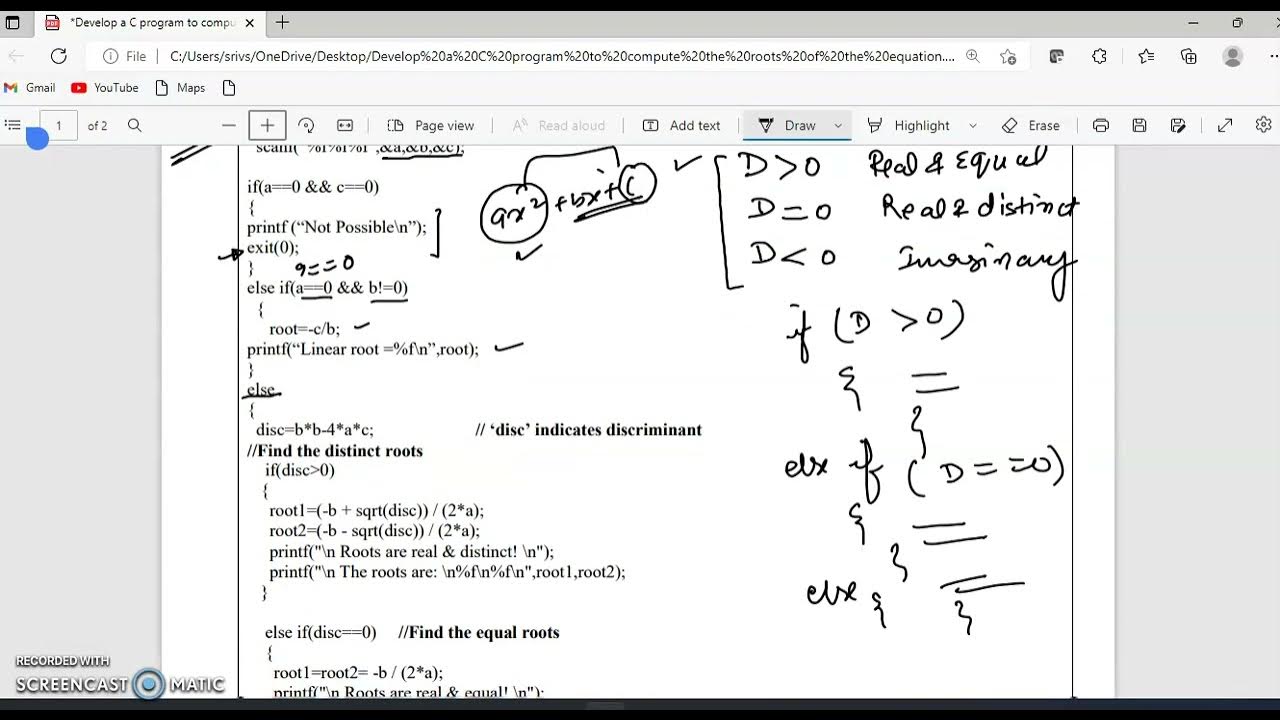 *Develop a C program to compu
File
C:/Users/srivs/OneDrive/Desktop/Develop%20a%20C%20program%20to%20compute%20the%20roots%20of%20the%20equation....
Gmail
YouTube
Maps
1 of 2
Page view
Read aloud
Add text
Draw
Highlight
Erase
scanf("%f%f%f",&a,&b,&c);
if(a==0 && c==0)
{
printf (“Not Possible\n”);
exit(0);
}
a==0
else if(a==0 && b!=0)
{
root=-c/b;
printf(“Linear root =%f\n”,root);
}
else
{
disc=b*b-4*a*c; // ‘disc’ indicates discriminant
//Find the distinct roots
if(disc>0)
{
root1=(-b + sqrt(disc)) / (2*a);
root2=(-b - sqrt(disc)) / (2*a);
printf("\n Roots are real & distinct! \n");
printf("\n The roots are: \n%f\n%f\n",root1,root2);
}
else if(disc==0) //Find the equal roots
{
root1=root2= -b / (2*a);
printf("\n Roots are real & equal! \n");
ax² + bx + C
D > 0 Real & Equal
D = 0 Real & distinct
D < 0 Imaginary
if (D > 0)
{
}
else if (D = = 0)
{
}
else {
}
RECORDED WITH
SCREENCAST MATIC